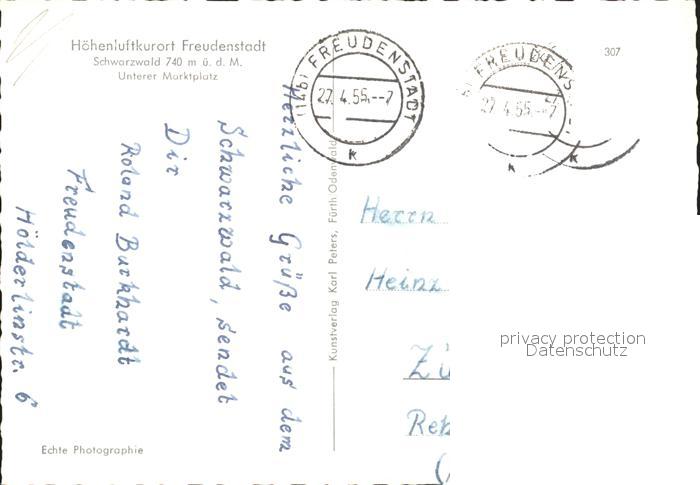 Höhenluftkurort Freudenstadt
Schwarzwald 740 m ü. d. M.
Unterer Marktplatz
(14b) FREUDENSTADT
27.4.55.--7
k
FREUDENS
27.4.55.--7
k
k
307
Herzliche Grüße aus dem
Schwarzwald, sendet
Dir
Roland Burkhardt
Freudenstadt
Hölderlinstr. 6
Kunstverlag Karl Peters, Fürth Odenwald
Herrn
Heinz
Zü
Reb
(
privacy protection
Datenschutz
Echte Photographie